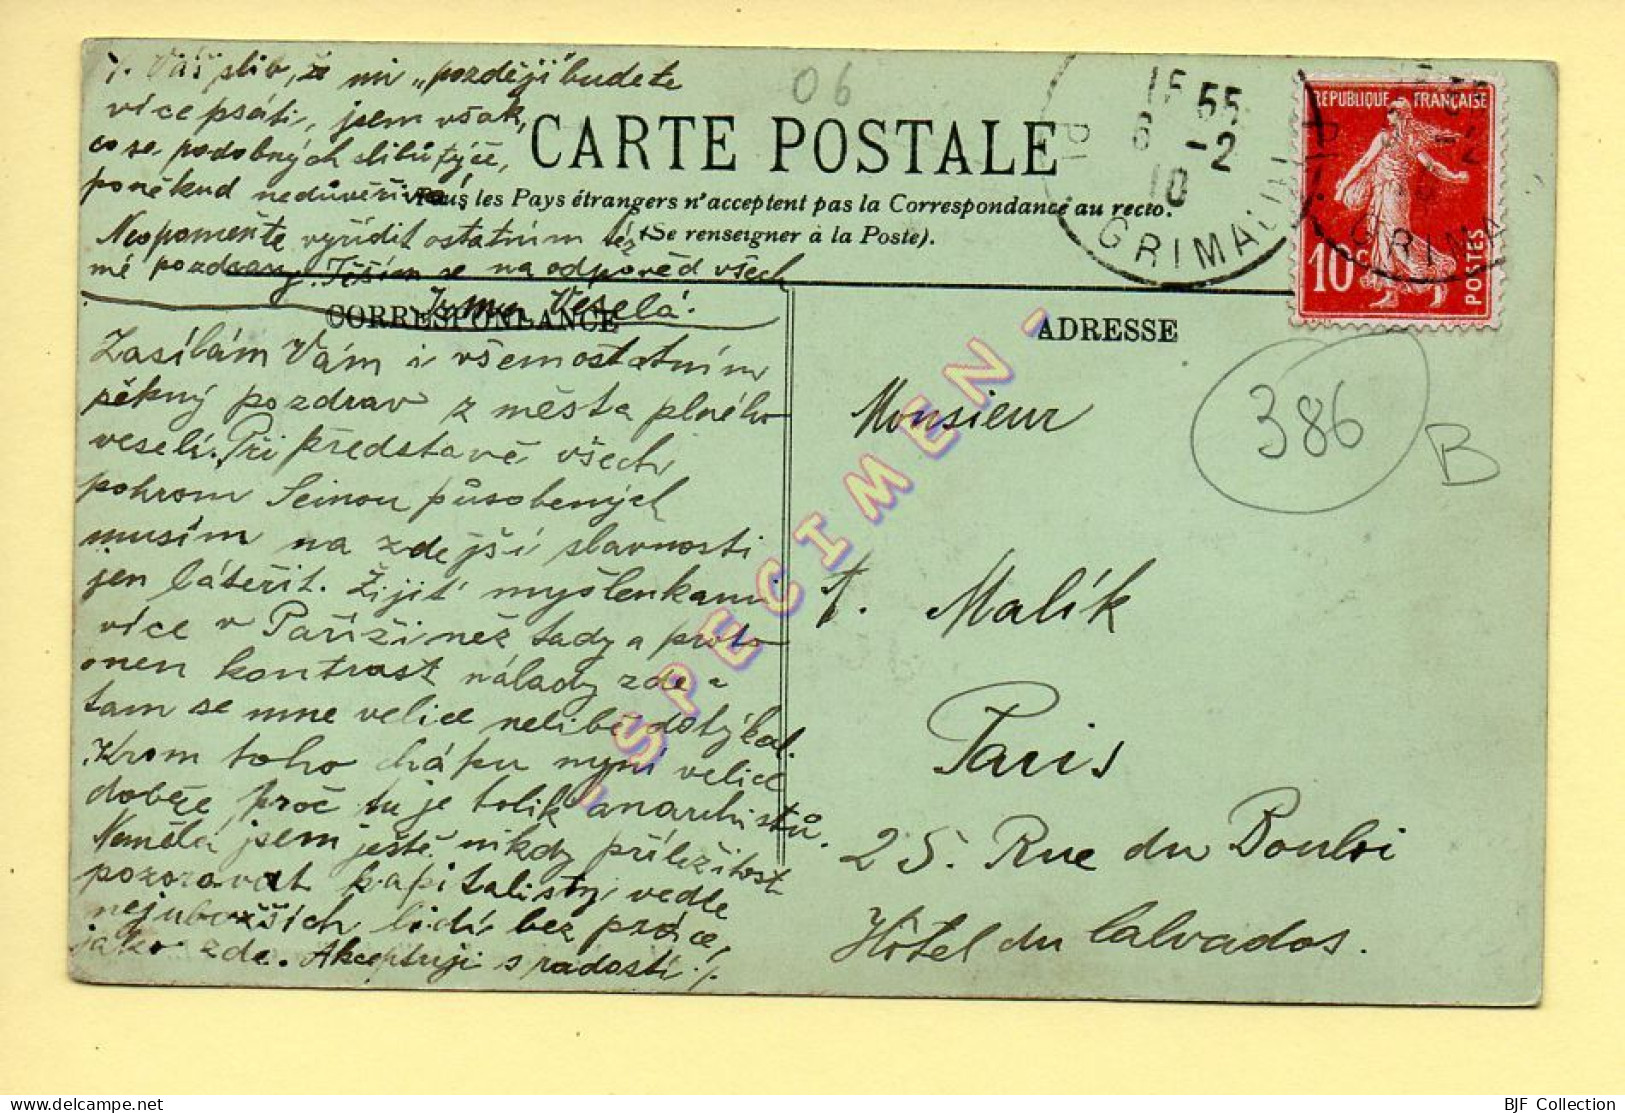 /. Váš slib, že mi „později" budete
více psáti, jsem však,
co se podobných slibů týče,
poněkud nedůvěřivá!
Neopomeňte vyřídit ostatním též
mé pozdravy. Těším se na odpověď všech
Veselá.
06
CARTE POSTALE
Tous les Pays étrangers n'acceptent pas la Correspondance au recto.
(Se renseigner à la Poste).
CORRESPONDANCE
Zasílám Vám i všem ostatním
pěkný pozdrav z města plného
veselí. Při představě všech
pohrom Seinou působených
musím na zdejší slavnosti
jen láteřit. Žijiť myšlenkami
více v Paříži než tady a proto
onen kontrast nálady zde a
tam se mne velice nelibě dotýkal.
Krom toho chápu nyní velice
dobře, proč tu je tolik anarchistů.
Neměla jsem ještě nikdy příležitost
pozorovat kapitalisty vedle
nejubožších lidí bez práce,
jako zde. Akceptuji s radostí ./.
ADRESSE
Monsieur
A. Malík
Paris
25. Rue du Bouloi
Hôtel du Calvados.
386
B
55
6 -2
10
GRIMAUD
REPUBLIQUE FRANÇAISE
10 C
POSTES
GRIMA
SPECIMEN
BJF Collection